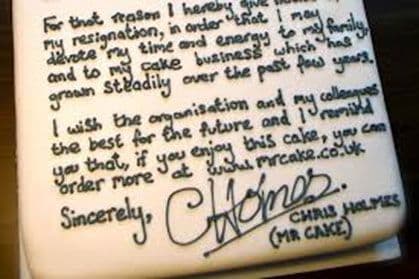 For that reason I hereby give
my resignation, in order that I may
devote my time and energy to my family,
and to my cake business which has
grown steadily over the past few years.
I wish the organisation and my colleagues
the best for the future and I remind
you that, if you enjoy this cake, you can
order more at www.mrcake.co.uk.
Sincerely,
CHolmes.
CHRIS HOLMES
(MR CAKE)